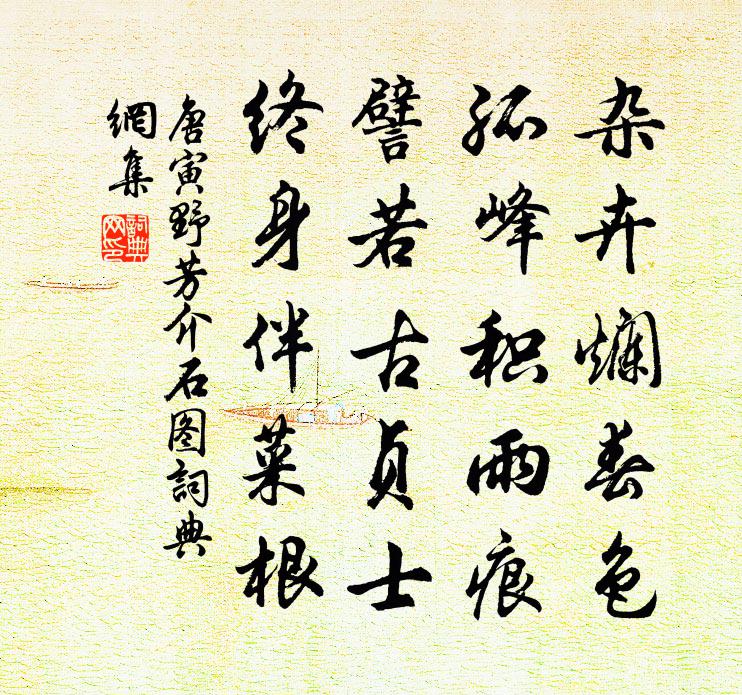 杂卉爛春色
孤峰积雨痕
譬若古贞士
终身伴菜根
唐寅野芳介石图詞典
網集
詞典
网印